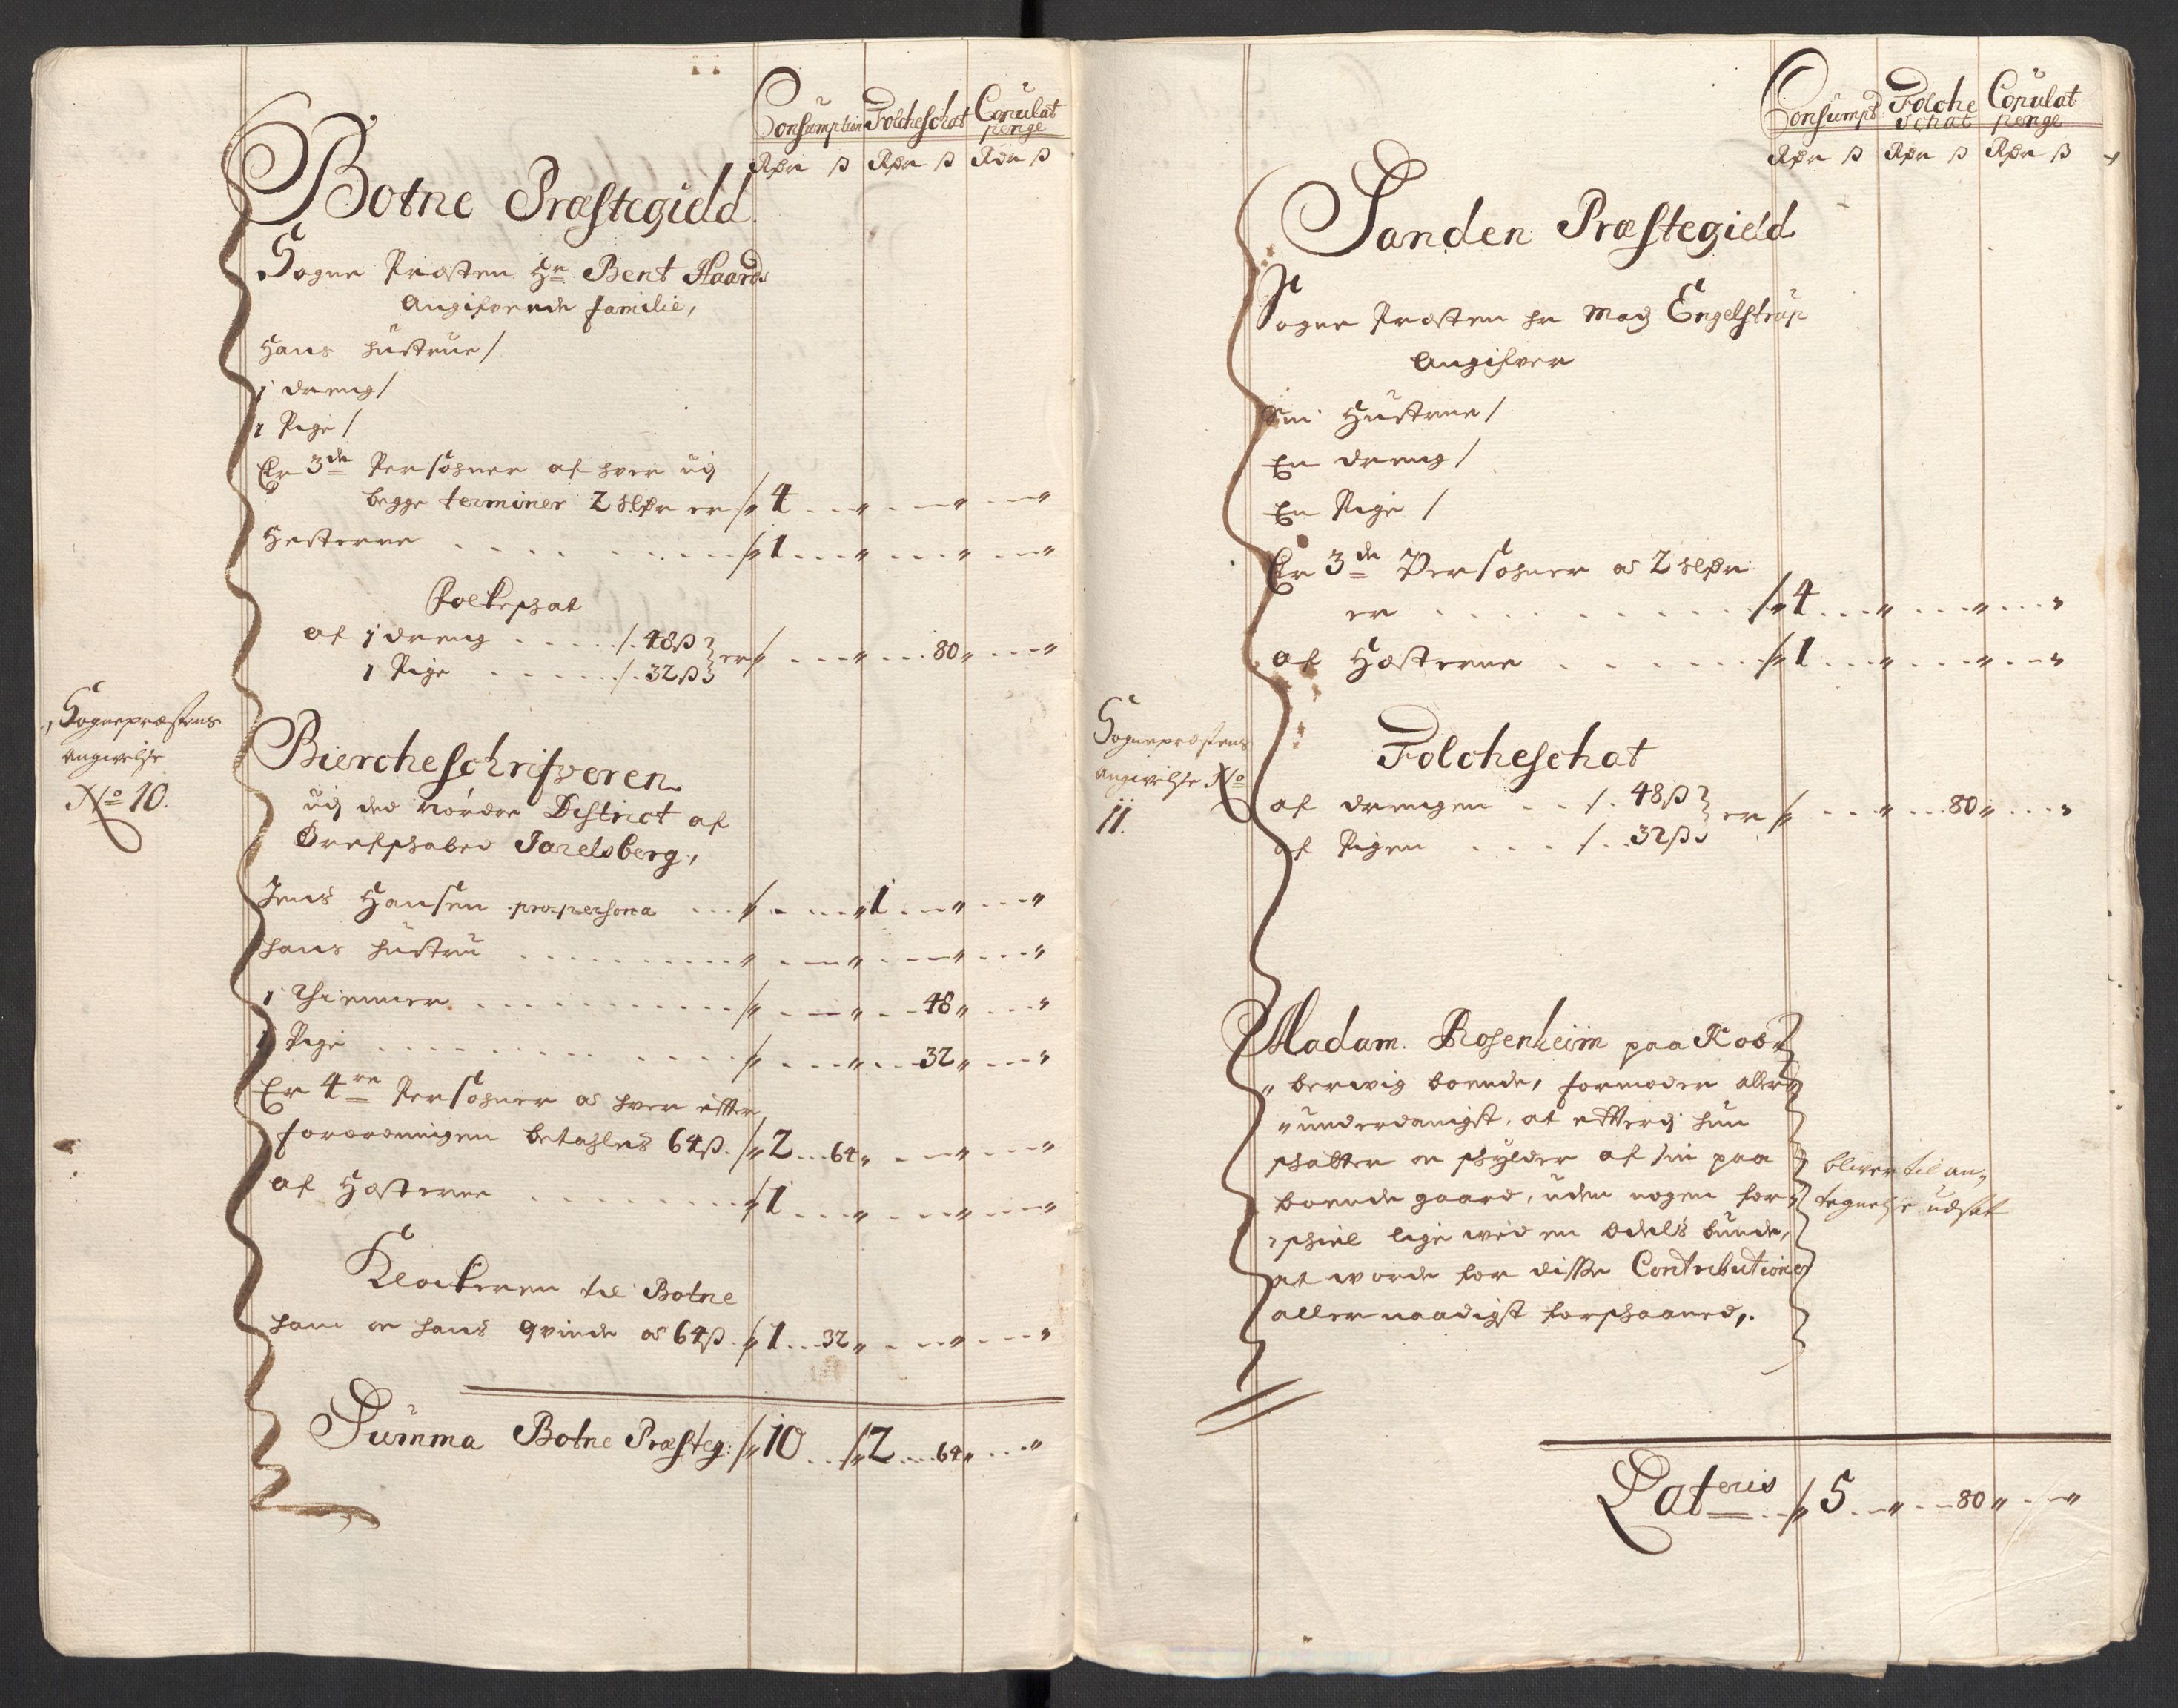 Consumption Folcheschat Copulat
penge
Rdr ß Rdr ß Rdr ß
Botne Præstegield
Sogne Præsten Hr Bent
Angifvende familie,
Hans hustrue /
1 dreng /
1 Pige /
Er 3de Persohner af hver udj
begge terminer 2 Rdr er /" 4 . . . " . . . " . . . "
Hesterne . . . /" 1 . . . " . . . " . . . "
Folkeschat
af 1 dreng . . . /. 48 ß
1 Pige . . . /. 32 ß } er /" . . . " . . . 80 " . . . "
Sognepræstens
angivelse
No 10.
Biercheschrifveren
udj ded Nordre District af
Grefschabed Jarelsberg,
Jens Hansen pro persona . . . /" . . . " 1 . . . " . . . "
hans hustru . . . " . . . " . . . " . . . "
1 Thienner . . . /" . . . " . . . 48 " . . . "
1 Pige . . . /" . . . " . . . 32 " . . . "
Er 4re Persohner a hver efter
forordningen betahles 64 ß. /" 2 . . . 64 " . . . " . . . "
af Hesterne . . . /" 1 . . . " . . . " . . . "
Klockeren til Botne
ham oc hans qvinde a 64 ß. /" 1 . . . 32 " . . . " . . . "
Summa Botne Præsteg: /" 10 . . /" 2 . . . 64 " . . . "
Consumpt Folche schat Copulat penge
Rdr ß Rdr ß Rdr ß
Sanden Præstegield
Sogne Præsten hr Mag Engelstrup
Angifver
Sin Hustrue /
En dreng /
En Pige /
Er 3de Persohner a 2 Rdr
er . . . /" 4 . . . " . . . " . . . "
af Hesterne . . . /" 1 . . . " . . . " . . . "
Sognepræstens
angivelse No
11.
Folcheschat
af drengen . . /. 48 ß
af Pigen . . . /. 32 ß } er /" . . . " . . . 80 " . . . "
Madam. Rosenheim paa
berwig boende, formoder aller
underdanigst, at efterdj hun
schatter oc schylder af sin paa
boende gaard, uden nogen for
schiel lige wed en Odels bunde,
at worde for disse Contributioner
allernaadigst forschaaned,.
bliver til an,,
tegnelse udsat
Lateris . . /" 5 . . . " . . . 80 " . . . "